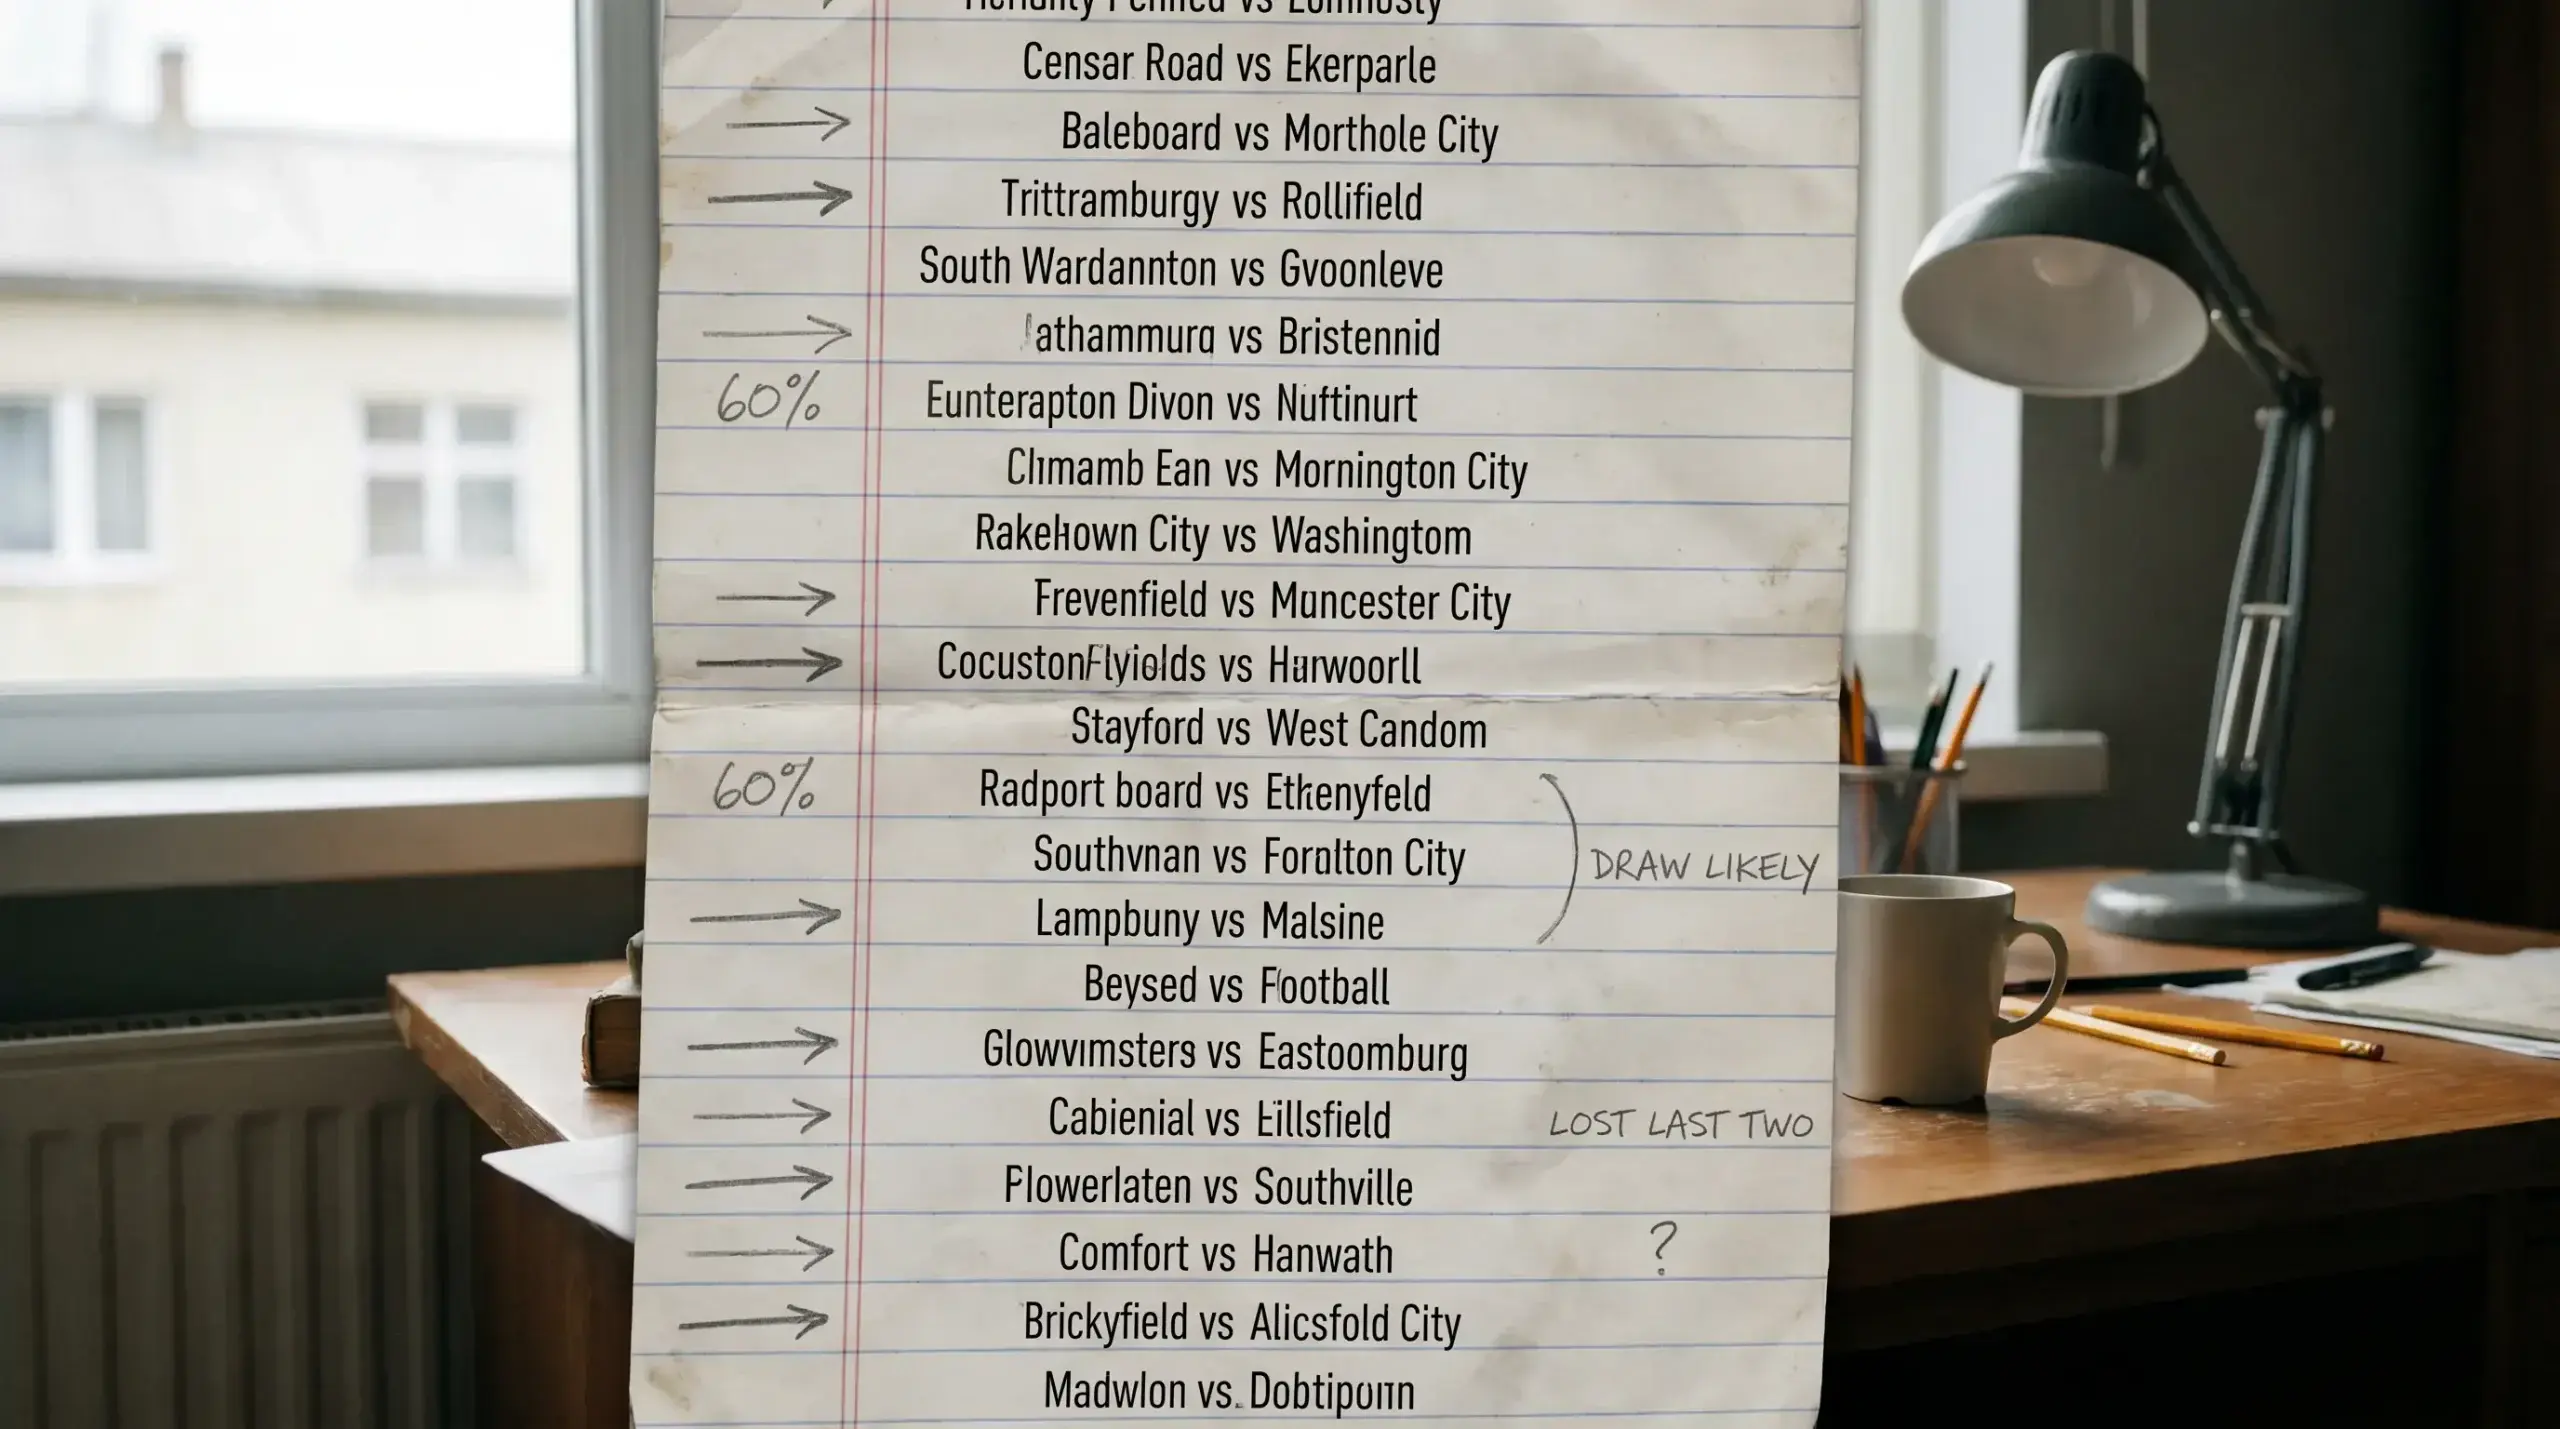 vs
Censar Road vs Ekerparle
→ Baleboard vs Morthole City
→ Trittramburgy vs Rollifield
South Wardannton vs Gvoonleve
→ vs Bristennid
60% Eunterapton Divon vs Nuftinurt
Clımamb Ean vs Mornington City
vs Washingtom
→ Frevenfield vs Muncester City
→ vs
Stayford vs West Candom
60% Radport board vs
Southvnan vs Foralton City
→ Lampbuny vs Malsine
DRAW LIKELY
Beysed vs Football
→ Glowvımsters vs Eastoomburg
→ Cabienial vs LOST LAST TWO
→ Flowerlaten vs Southville
→ Comfort vs Hanwath ?
→ Brickyfield vs Alicsfold City
Madwlon vs.